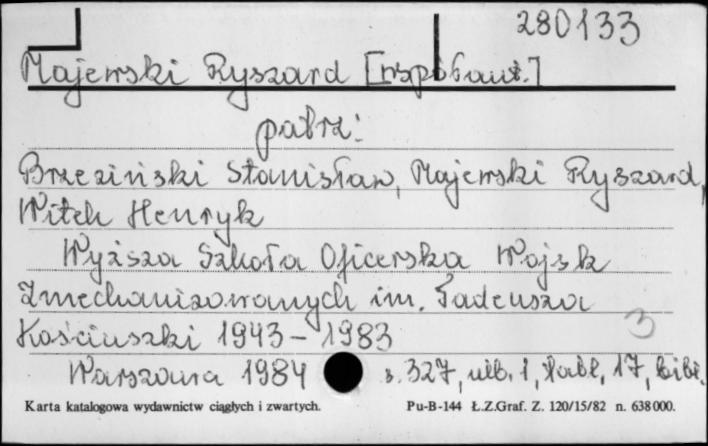 280133
Majewski Ryszard [współaut.]
patrz:
Brzeziński Stanisław, Majewski Ryszard,
Witek Henryk
Wyższa Szkoła Oficerska Wojsk
Zmechanizowanych im. Tadeusza
Kościuszki 1943-1983
3
Warszawa 1984 s. 327, nlb. 1, tabl. 17, bibl.
Karta katalogowa wydawnictw ciągłych i zwartych. Pu-B-144 Ł.Z.Graf. Z. 120/15/82 n. 638000.